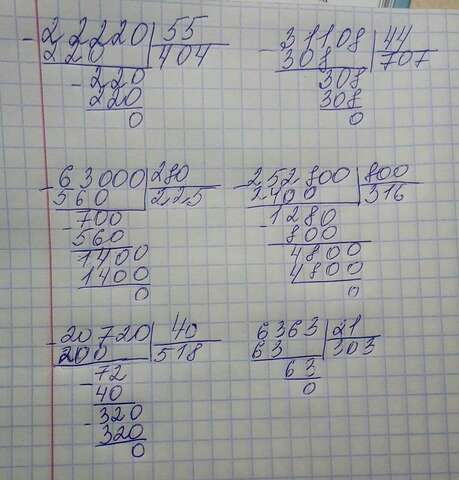 - 22220 | 55
220 | 404
- 220
220
0
- 31108 | 44
308 | 707
308
308
0
- 63000 | 280
560 | 2,2,5
- 700
560
1400
1400
0
- 252800 | 800
2400 | 316
- 1280
800
4800
4800
0
- 20720 | 40
200 | 518
- 72
40
- 320
320
0
6363 | 21
63 | 303
63
0